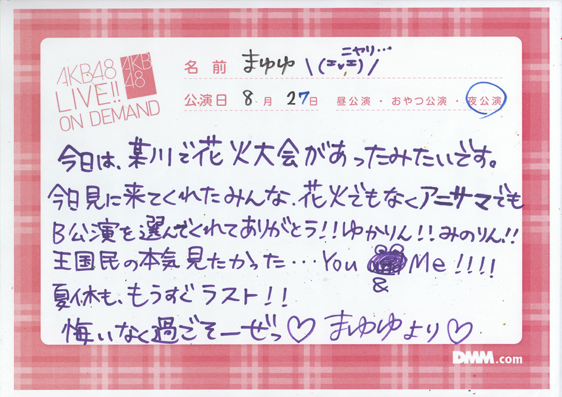 AKB48
LIVE!!
ON DEMAND
AKB
48
名前 まゆゆ
ニヤリ…
公演日 8月27日 昼公演・おやつ公演・夜公演
今日は、某川で花火大会があったみたいです。
今日見に来てくれたみんな、花火でもなくアニサマでも
B公演を選んでくれてありがとう!!ゆかりん!!みのりん!!
王国民の本気見たかった…You & Me!!!!
夏休も、もうすぐラスト!!
悔いなく過ごそーぜっ♡ まゆゆより♡
DMM.com